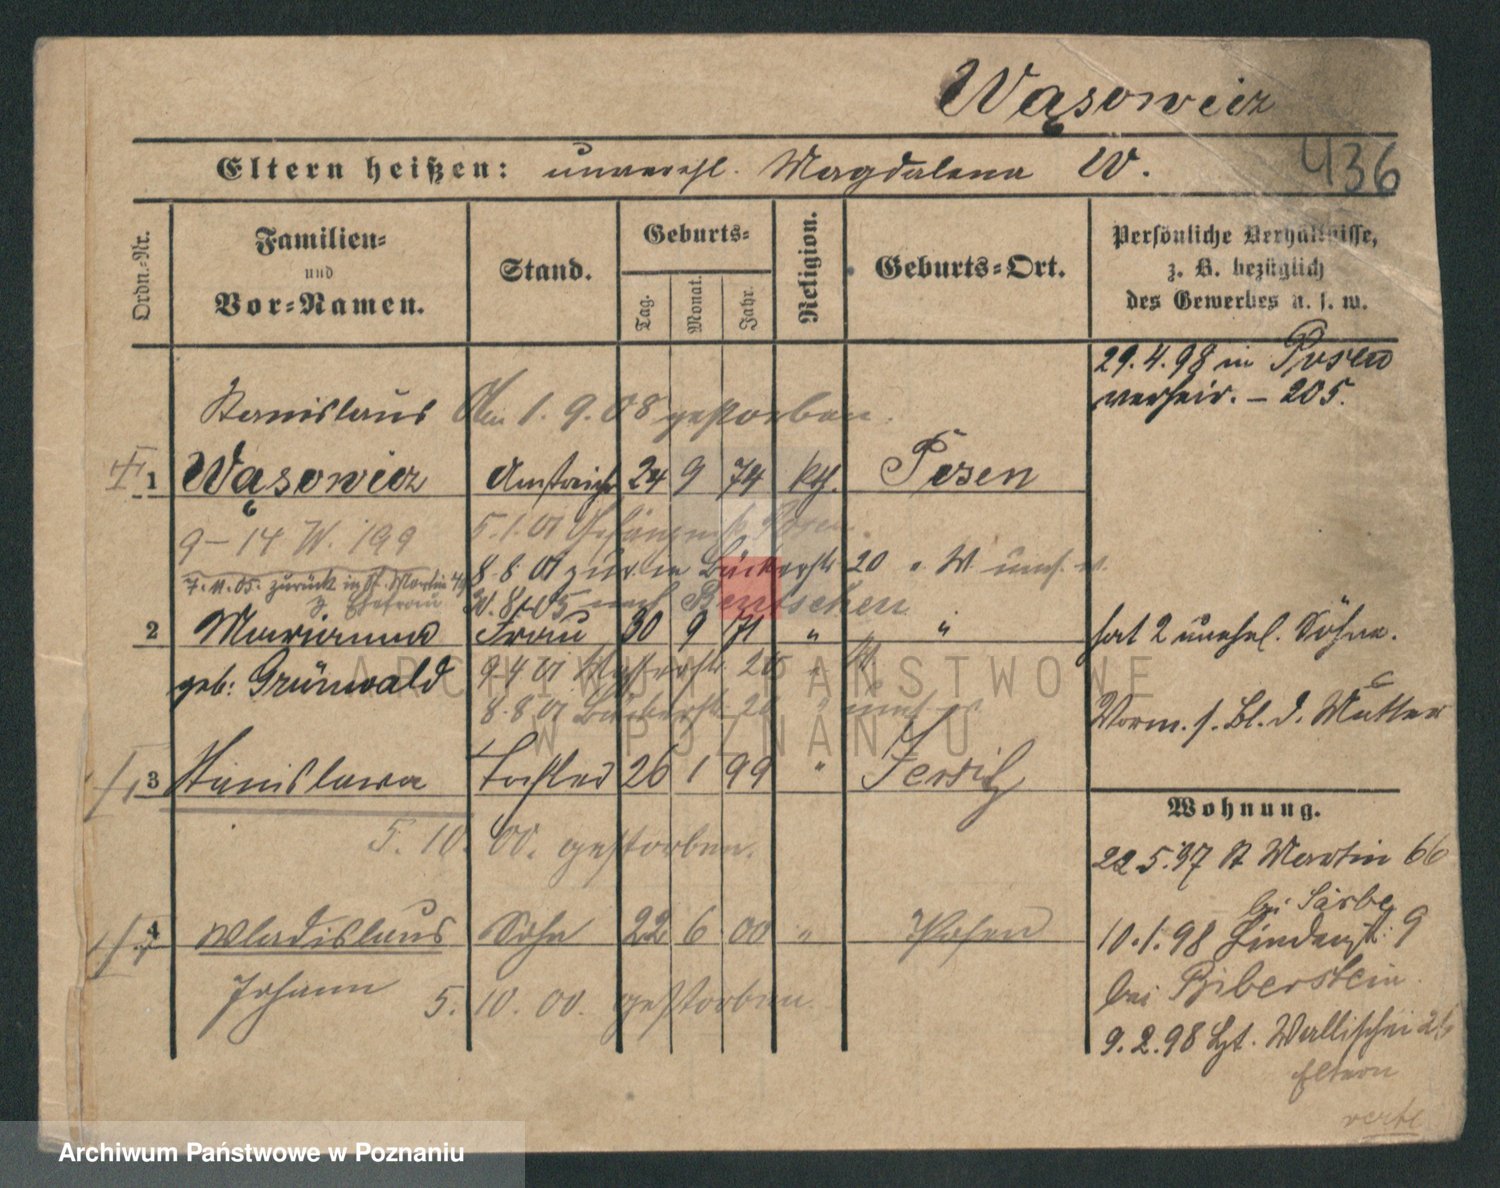 Wąsowicz
Eltern heißen: unverehl. Magdalena W.
436
Ordn.-Nr.
Familien-
und
Vor-Namen.
Stand.
Geburts-
Tag.
Monat.
Jahr.
Religion.
Geburts-Ort.
Persönliche Verhältnisse,
z. B. bezüglich
des Gewerbes u. s. w.
29.4.98 in Posen
verheir. – 205.
Stanislaus Am 1.9.08 gestorben.
1 Wąsowicz Anstreicher 24 9 74 kth. Posen
9–14 W. 199 5.1.01 Gefängniß Posen.
7.11.05. zurück in St. Martin
z. Ehefrau
8.8.01 zur. in Bäckerstr 20
nach Bentschen
2 Marianna Frau 30 9 71 " "
hat 2 unehel. Söhne.
geb: Grünwald 9.4.01 20
8.8.01 Bäckerstr. 20 "
Vorm. s. Bl. d. Mutter
3 Stanislawa Tochter 26 1 99 " Jersitz
5.10.00. gestorben.
Wohnung.
22 5.97 St Martin 66
bei Särbe
4 Wladislaus Sohn 22 6 00 " Posen
10.1.98 Lindenstr. 9
Johann
bei Biberstein.
5.10.00. gestorben.
9.2.98 Wallischei
Eltern
verte
ARCHIWUM PAŃSTWOWE
W POZNANIU
Archiwum Państwowe w Poznaniu